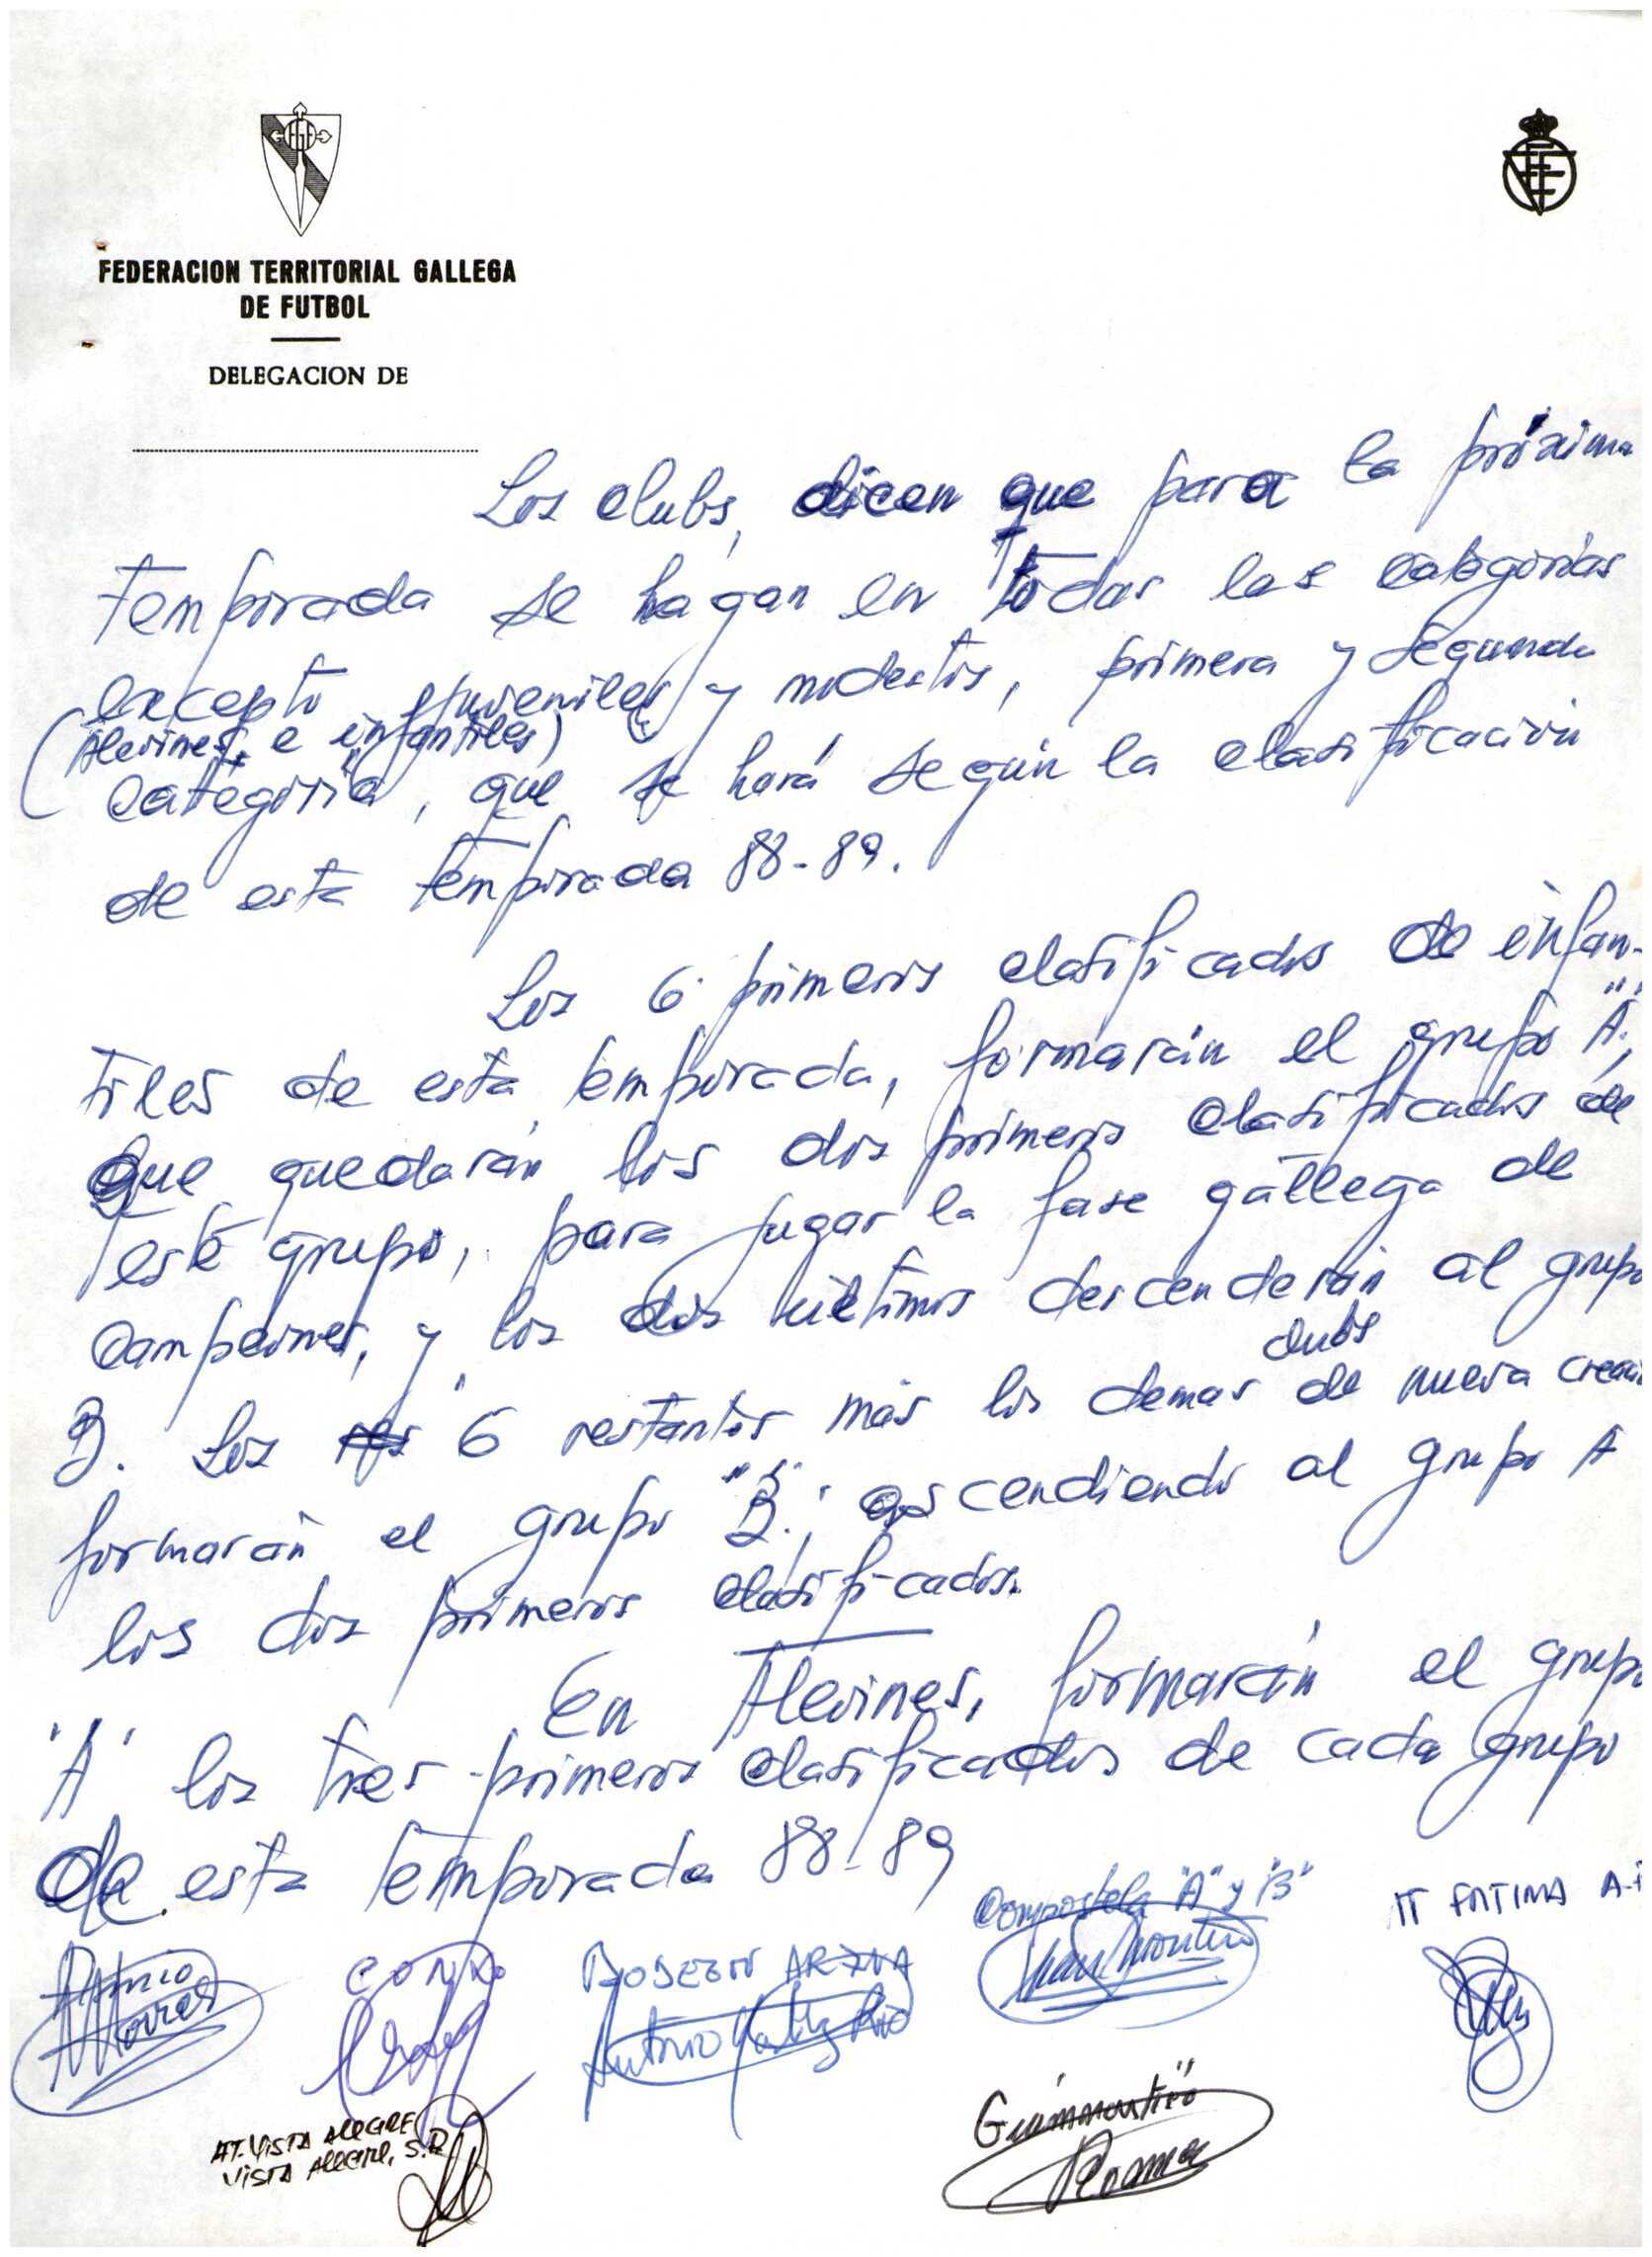 FGF
FEDERACION TERRITORIAL GALLEGA
DE FUTBOL
DELEGACION DE
Los clubs, dicen que para la próxima
temporada se hagan en todas las categorías
excepto juveniles y modestos, primera y segunda
(Alevines, e infantiles)
categoría, que se hará según la clasificación
de esta temporada 88-89.
Los 6 primeros clasificados de infan-
tiles de esta temporada, formarán el grupo "A",
que quedarán los dos primeros clasificados de
este grupo, para jugar la fase gallega de
campeones, y los dos últimos descenderán al grupo
clubs
B. Los 6 restantes más los demas de nueva creaci
formarán el grupo "B", ascendiendo al grupo A
los dos primeros clasificados.
En Alevines, formarán el grupo
"A" los tres primeros clasificados de cada grupo
de esta temporada 88-89
Compostela "A" y "B"
AT FATIMA A-
CONXO
ARZUA
Antonio
AT. VISTA ALEGRE
VISTA ALEGRE, S.D.